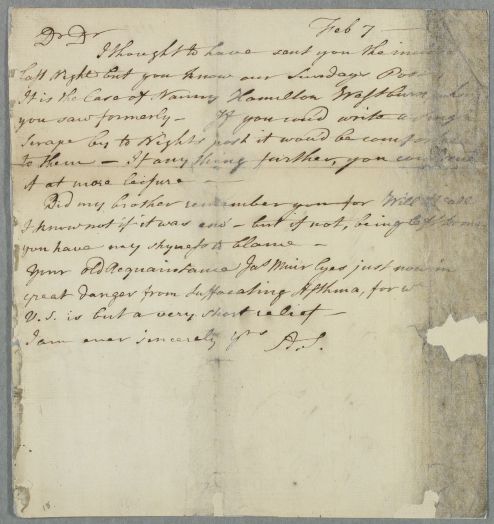 Feb 7
Dr Dr
I thought to have sent you the
last Night but you know our Sundays Post
It is the Case of Nanny Hamilton Westburn whom
you saw formerly - If you could write a single
Scrape by to Nights post it would be
to them - If any thing further, you can write
it at more leisure
Did my brother remember you for Will
I know not if it was - but if not, being left to me
you have my shyness to blame -
Your old Acquaintance Jas Muir lyes just now in
great danger from Suffocating Asthma, for wc
V.S. is but a very short relief -
I am ever sincerely yrs
18.